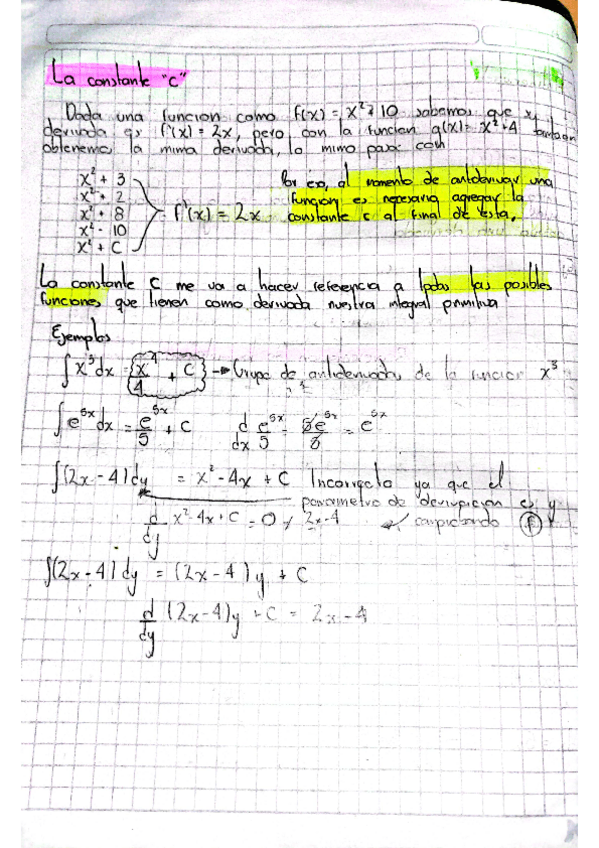 La constante "C"
Dada una funcion como f(x) = x² + 10 sabemos que su
derivada es f'(x) = 2x, pero con la funcion g(x) = x² + 4 tambien
obtenemos la misma derivada, lo mimo pasa con
x² + 3
x² + 2
x² + 8
x² - 10
x² + C
f'(x) = 2x
Por eso, al momento de antiderivar una
funcion es necesario agregar la
constante c al final de esta,
La constante C me va a hacer referencia a todas las posibles
funciones que tienen como derivada nuestra integral primitiva
Ejemplos
∫x³dx = x⁴/4 + C → Grupo de antiderivadas de la funcion x³
∫e⁵ˣdx = e⁵ˣ/5 + C d/dx e⁵ˣ/5 = 5e⁵ˣ/5 = e⁵ˣ
∫(2x-4)dy = x² - 4x + C Incorrecto ya que el
parametro de es y
d/dy x² - 4x + C = 0 ≠ 2x-4
∫(2x-4)dy = (2x-4)y + C
d/dy (2x-4)y + C = 2x-4